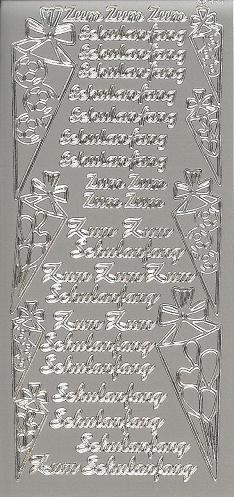 Zum Zum Zum
Schulanfang
Schulanfang
Schulanfang
Schulanfang
Schulanfang
Schulanfang
Schulanfang
Zum Zum
Zum Zum
Zum Zum
Schulanfang
Zum Zum Zum
Schulanfang
Zum Zum
Schulanfang
Schulanfang
Schulanfang
Schulanfang
Schulanfang
Zum Schulanfang